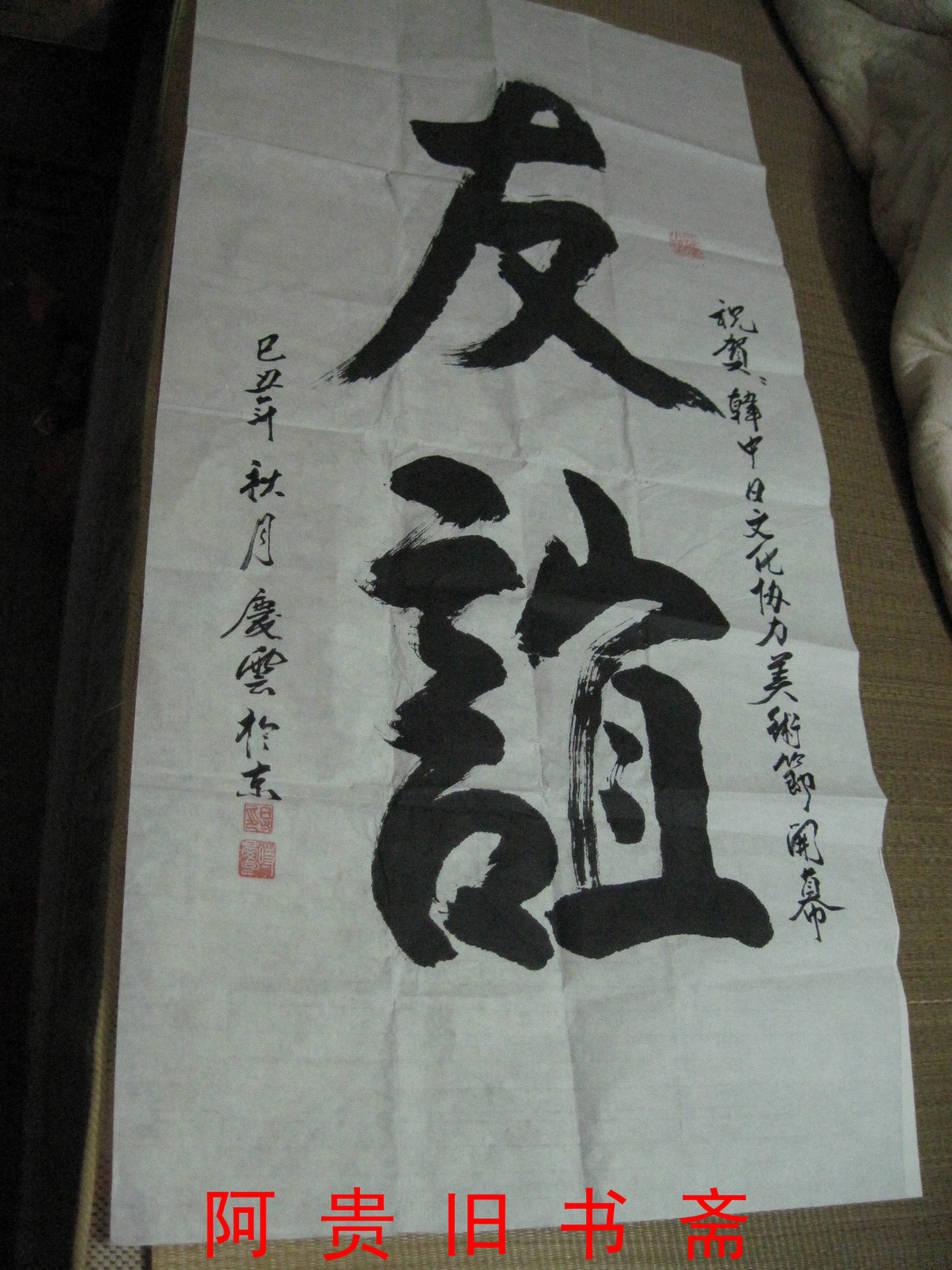 友誼
祝賀：韓中日文化协力美術節開幕
己丑年秋月慶雲於东
阿贵旧书斋